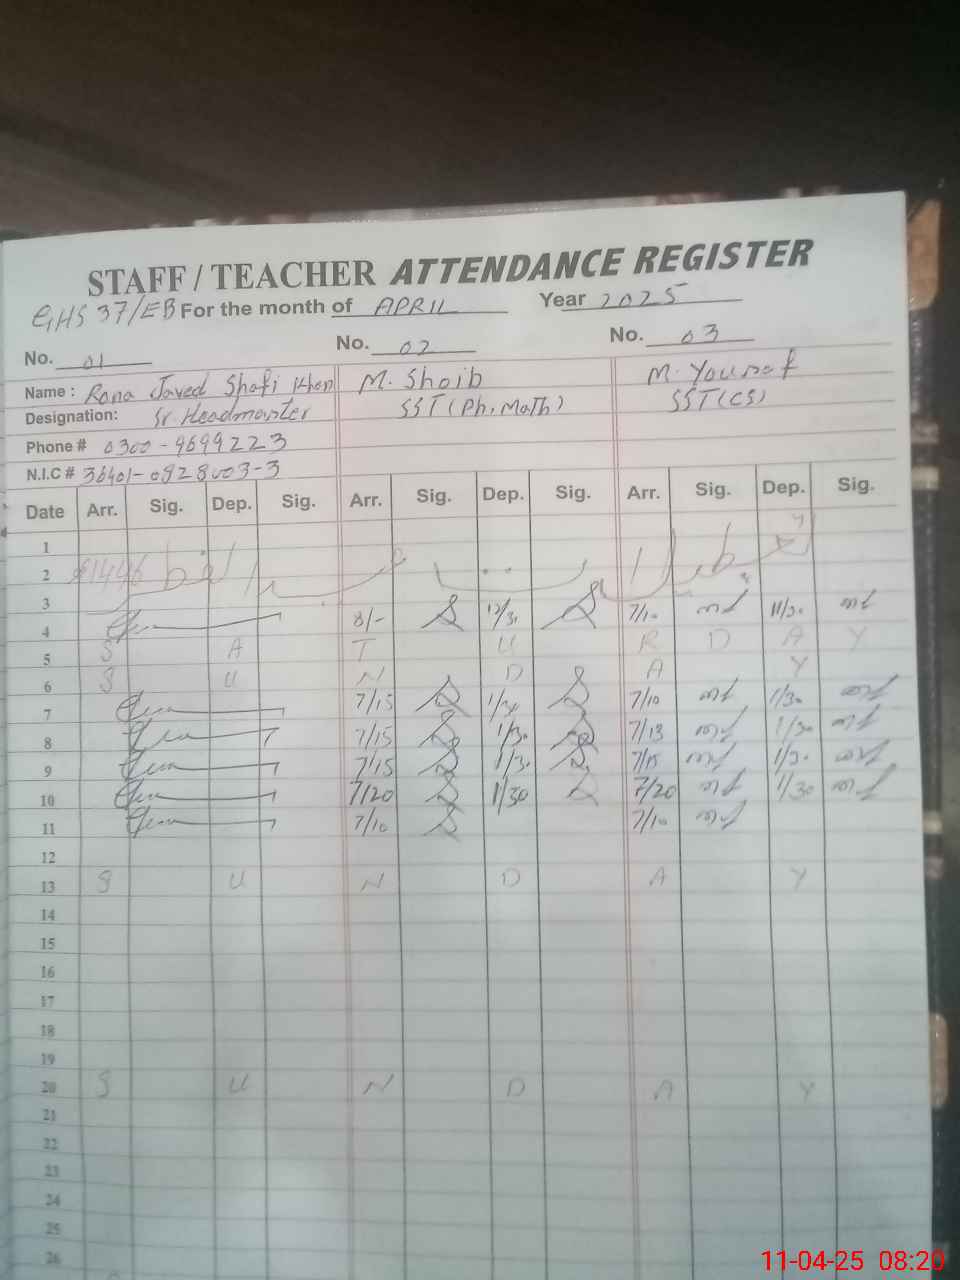 STAFF / TEACHER ATTENDANCE REGISTER
GHS 37/EB For the month of APRIL Year 2025
No. 01 No. 02 No. 03
Name : Rana Javed Shafi Khan M. Shoib M. Yousaf
Designation: Sr. Headmaster SST (Ph, Math) SST (CS)
Phone # 0300-9699223
N.I.C # 36401-0828003-3
Date Arr. Sig. Dep. Sig. Arr. Sig. Dep. Sig. Arr. Sig. Dep. Sig.
1
2
3
4 8/- 12/30 7/10 11/30
5 S A T U R D A Y
6 S U N D A Y
7 7/15 1/30 7/10 1/30
8 7/15 1/30 7/13 1/30
9 7/15 1/30 7/15 1/30
10 7/20 1/30 7/20 1/30
11 7/10 7/10
12
13 S U N D A Y
14
15
16
17
18
19
20 S U N D A Y
21
22
23
24
25
26
11-04-25 08:20